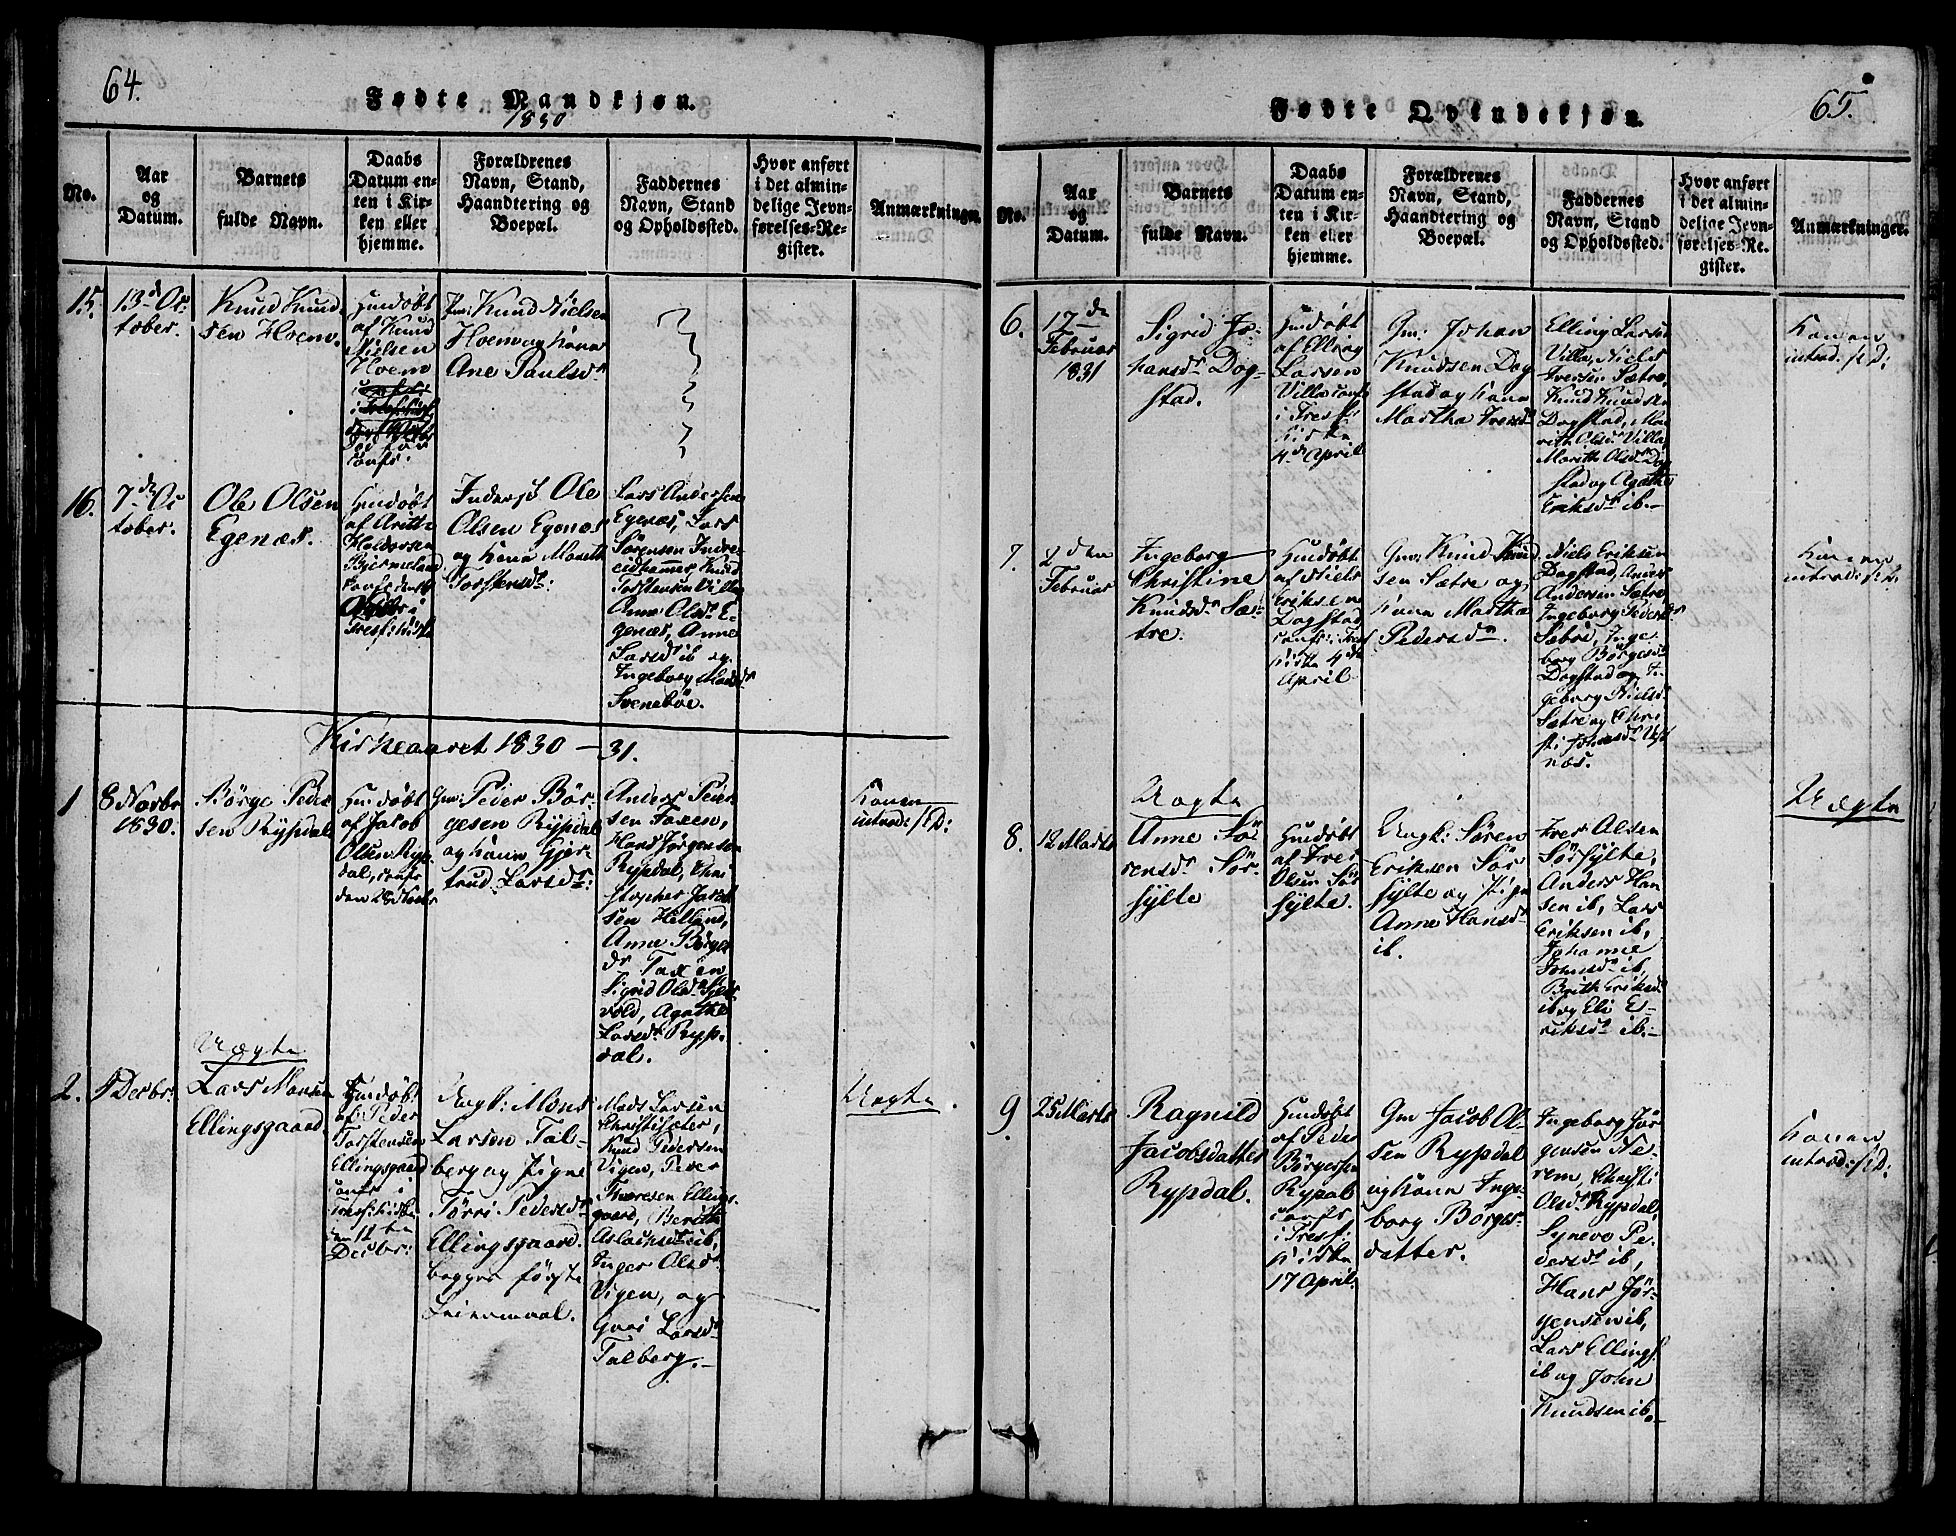 64.
Fødte Mandkjøn.
1830
No.
Aar
og
Datum.
Barnets
fulde Navn.
Daabs
Datum en-
ten i Kir-
ken eller
hjemme.
Forældrenes
Navn, Stand,
Haandtering og
Boepæl.
Faddernes
Navn, Stand
og Opholdssted.
Hvor anført
i det almin-
delige Jevn-
førelses-Re-
gister.
Anmærkninger.
15.
13de Oc-
tober.
Knud Knud-
sen Hoem.
Hmdøbt
af Knud
Nielsen
Hoem
Gm: Knud Nielsen
Hoem og Kone
Ane Paulsdr
16.
7de Oc
tober.
Ole Olsen
Egenæs.
Hmdøbt
Inderst Ole
Olsen Egenæs
og Kone Marith
Torstensdr:
Lars Andersen
Egenæs, Lars
Sørensen Indre-
eidhammer Knud
Torstensen Villa
Anne Olsdr E-
genæs, Anne
Larsdr ib og
Ingeborg Madsdr
Svenebøe.
Kirkeaaret 1830 - 31.
1
8 Novbr
1830.
Børge Peder
sen Rypdal
Hmdøbt
af Jacob
Olsen Ryp-
dal, confr
Gm: Peder Bør-
gesen Rypdal
og Kone Gjer-
trud Larsdr:
Anders Peder
sen Taxen,
Hans Jørgensen
Rypdal, Chri
stopher Jacob
sen Helland,
Anne Børges
dr Taxen
Sigrid Olsdr
vold, Agathe
Larsdr Ryp-
dal.
Konen
introd: s: D:
2.
5 Decbr:
Uægte
Lars Monsen
Ellingsgaard.
Hmdøbt
af Peder
Torstensen
Ellingsgaard
confr i
Tresf: Kirke
den 12 te
Decbr:
Ungk: Mons
Larsen Tal-
berg og Pigne
Tørri Pedersdr
Ellingsgaard.
begges første
Leiermaal.
Mads Larsen
Knud Pedersen
Vigen, Peder
Iversen Ellings-
gaard, Berith
Aslachsdr ib,
Inger Olsdr
Vigen, og
Guri Larsdr
Talberg.
Uægte.
65.
Fødte Qvindekjøn.
No.
Aar
og
Datum.
Barnets
fulde Navn.
Daabs
Datum en-
ten i Kir-
ken eller
hjemme.
Forældrenes
Navn, Stand,
Haandtering og
Boepæl.
Faddernes
Navn, Stand
og Opholdssted.
Hvor anført
i det almin-
delige Jevn-
førelses-Re-
gister.
Anmærkninger.
6.
17de
Februar
1831
Sigrid Jo-
hansdr Dag-
stad.
Hmdøbt
af Elling
Larsen
Villa confr
i Tresf:
Kirke
4de April
Gm: Johan
Knudsen Dag
stad og Kone
Martha Iversdr
Elling Larsen
Villa, Niels
Iversen Sætre,
Knud Knudsen
Dagstad, Ma-
rith Olsdr Villa
Marith Olsdr Dag
stad og Agathe
Eriksdr ib.
7.
2den
Februar
Ingeborg
Christine
Knudsdr Sæ-
tre.
Hmdøbt
af Niels
Eriksen
Dagstad
confr: Tresf
Kirke 4de
April
Gm: Knud Knud
sen Sætre og
Kone Martha
Pedersdr.
Niels Eriksen
Dagstad, Anders
Andersen Sætre
Ingeborg Pedersdr
Sætre, Inge-
borg Børgesdr
Dagstad og In
geborg Nielsdr
Sætre og Chri
sti Johansdr Vest
næs.
Konen
introd: s: D:
8.
12 Marts
Uægte
Anne Sø
rensdr Sør-
sylte
Hmdøbt
af Iver
Olsen Sør
sylte.
Ungk: Søren
Eriksen Sør
sylte og Pign
Anne Hansdr
ib.
Iver Olsen
Sørsylte,
Anders Han
sen ib, Lars
Eriksen ib,
Johanne
Jonsdr ib,
Brith Eriksdr
ib og Eli E-
riksdr ib.
Uægte
9
25 Marts
Ragnild
Jacobsdatter
Rypdal.
Hmdøbt
af Peder
Børgessen
Rypdal
confr
i Tresf:
Kirke
17 April
Gm Jacob Ol-
sen Rypdal
og Kone Inge-
borg Børges-
datter.
Ingeborg Jør
gensen Ne-
rem, Christi
Olsdr Rypdal,
Synevo Pe-
dersdr ib,
Hans Jør-
gensen ib,
Lars Ellings.
ib og John
Knudsen ib.
Konen
introd: s: D: